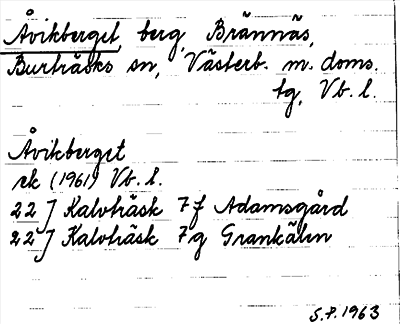 Åvikberget, berg, Brännäs,
Burträsks sn, Västerb. m. doms.
tg, Vb. l.
Åvikberget
ek (1961) Vb. l.
22] Kalvträsk 7f Adamsgård
22] Kalvträsk 7g Grankälen
S.P. 1963